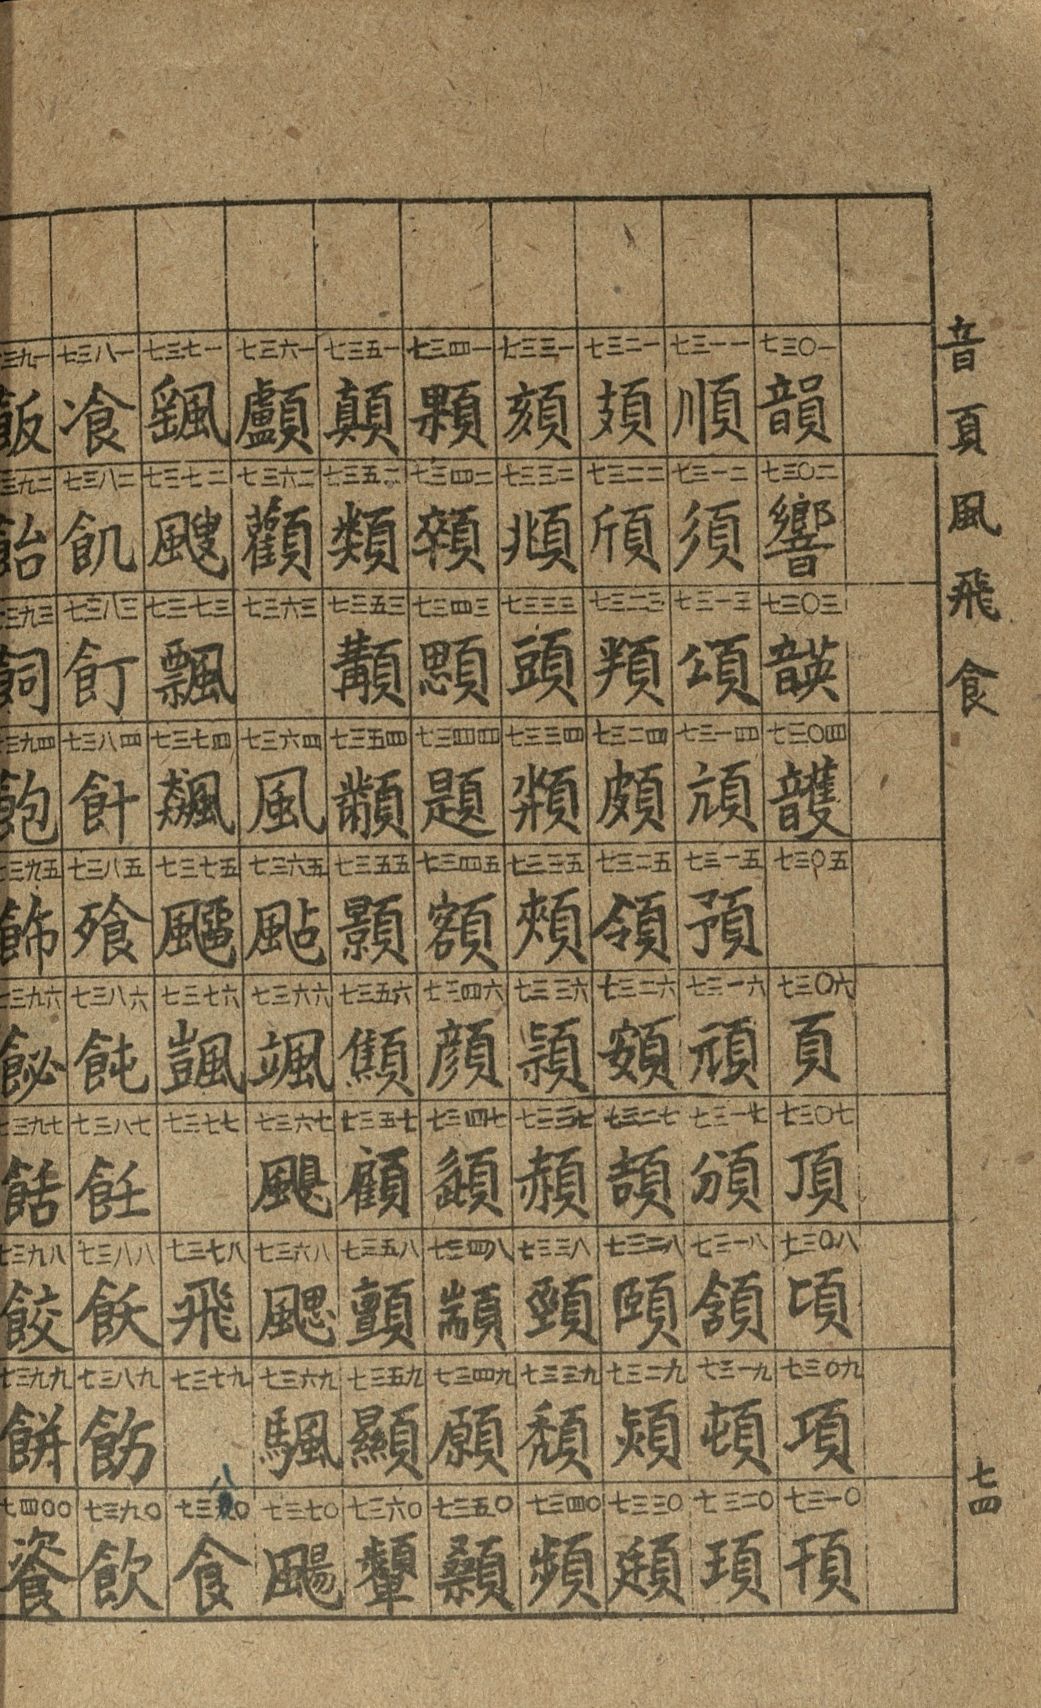 音頁風飛食
七四
七三〇一 韻
七三〇二 響
七三〇三 韺
七三〇四 頀
七三〇五
七三〇六 頁
七三〇七 頂
七三〇八 頃
七三〇九 項
七三一〇 頇
七三一一 順
七三一二 須
七三一三 頌
七三一四 頏
七三一五 預
七三一六 頑
七三一七 頒
七三一八 頷
七三一九 頓
七三二〇 頊
七三二一 頍
七三二二 頎
七三二三 頖
七三二四 頗
七三二五 領
七三二六 頞
七三二七 頡
七三二八 頤
七三二九 熲
七三三〇 頲
七三三一 頦
七三三二 頫
七三三三 頭
七三三四 頩
七三三五 頰
七三三六 顈
七三三七 頳
七三三八 頸
七三三九 頹
七三四〇 頻
七三四一 顆
七三四二 顇
七三四三 顋
七三四四 題
七三四五 額
七三四六 顏
七三四七 顓
七三四八 顓
七三四九 願
七三五〇 顙
七三五一 顛
七三五二 類
七三五三 顜
七三五四 顢
七三五五 顥
七三五六 顦
七三五七 顧
七三五八 顫
七三五九 顯
七三六〇 顰
七三六一 顱
七三六二 顴
七三六三
七三六四 風
七三六五 颭
七三六六 颯
七三六七 颶
七三六八 颸
七三六九 颿
七三七〇 颺
七三七一 颻
七三七二 颼
七三七三 飄
七三七四 飆
七三七五 飅
七三七六 颽
七三七七
七三七八 飛
七三七九
七三八〇 食
七三八一 飡
七三八二 飢
七三八三 飣
七三八四 飦
七三八五 飱
七三八六 飩
七三八七 飪
七三八八 飫
七三八九 飭
七三九〇 飲
三九一 飯
三九二 飴
三九三 飼
三九四 飽
三九五 飾
七三九六 飶
七三九七 餂
七三九八 餃
七三九九 餅
七四〇〇 餈